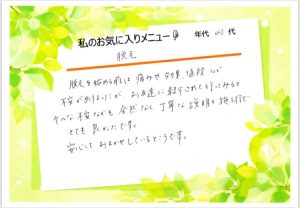 私のお気に入りメニュー 年代 40代
脱毛
脱毛を始める前は痛みや効果、値段など
不安がありましたが、お友達に紹介されて行ってみると
そんな不安なども全然なく丁寧な説明と施術で
とても良かったです。
安心しておまかせしているところです。